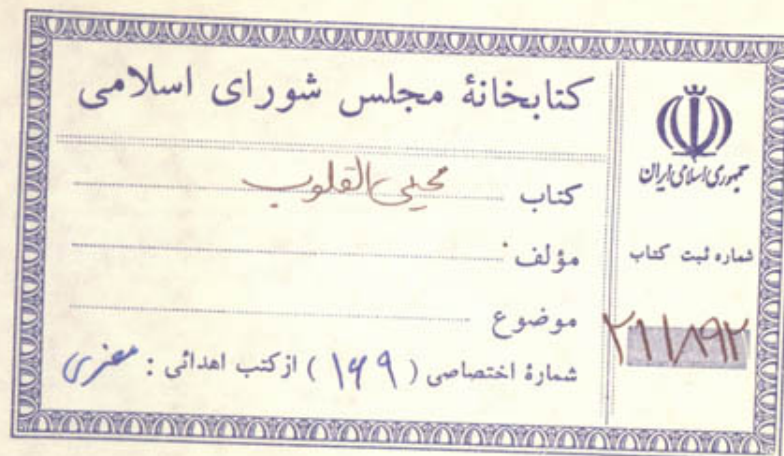 کتابخانهٔ مجلس شورای اسلامی
کتاب محیی القلوب
مؤلف
موضوع
شمارهٔ اختصاصی ( ۱۶۹ ) از کتب اهدائی :
جمهوری اسلامی ایران
شماره ثبت کتاب
۲۱۸۹۲